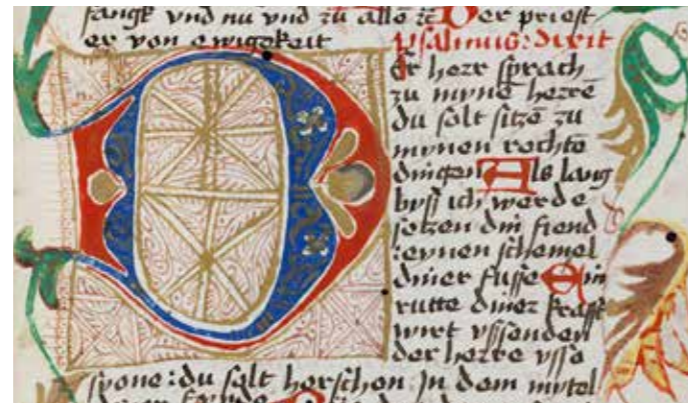 fangk vnd nu vnd zů allē zē Der priest
er von ewigkeit psalmus: dixit
Er herr sprach
zu mynē herrē
du solt sitzē zu
mynen rechtē
dingen Als lang
byß ich werde
setzen din fiend
zeynen schemel
diner fusse Ein
rutte diner krafft
wirt vssenden
der herre vsse
syone: du solt herschen in dem mytel